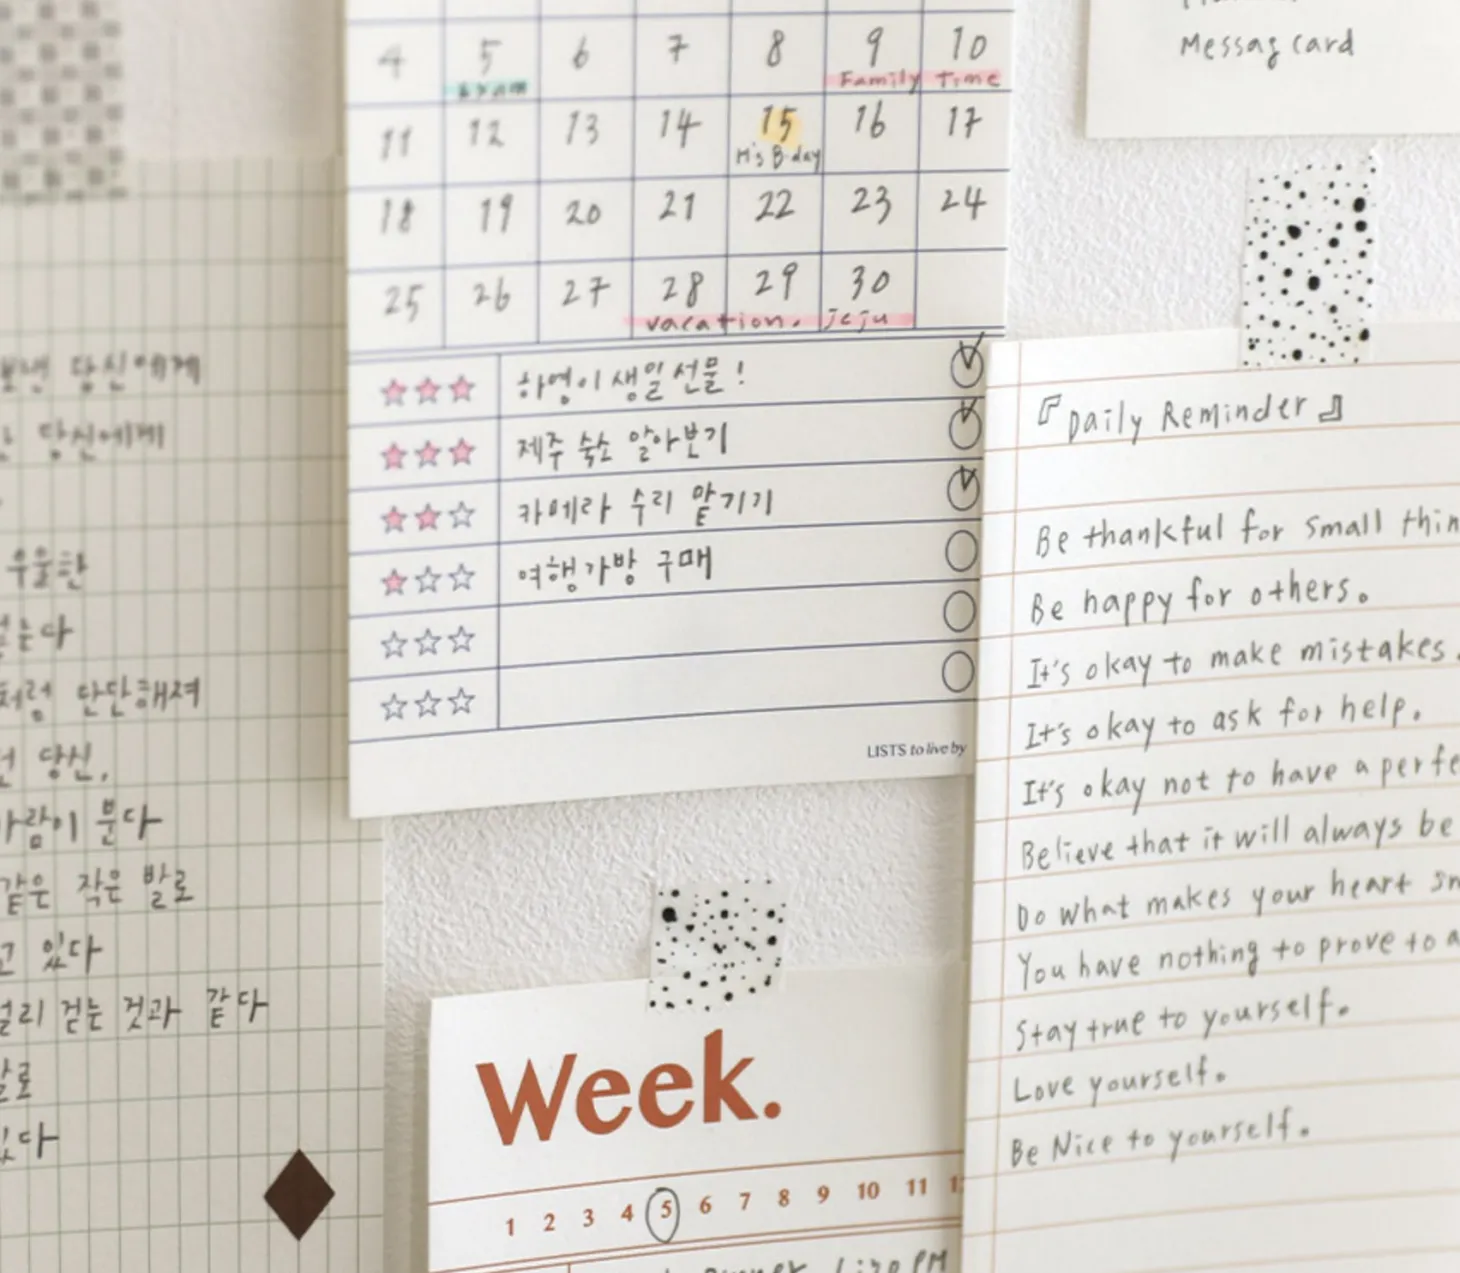 보낸 당신에게
당신에게
우울한
는다
처럼 단단해져
당신,
바람이 분다
같은 작은 발로
고 있다
걷는 것과 같다
있다
4 5 6 7 8 9 10
Exam Family Time
11 12 13 14 15 16 17
M's B-day
18 19 20 21 22 23 24
25 26 27 28 29 30
vacation. jeju
하영이 생일선물!
제주 숙소 알아보기
카메라 수리 맡기기
여행가방 구매
LISTS to live by
Week.
1 2 3 4 5 6 7 8 9 10 11
1:30 PM
Messag card
『Daily Reminder』
Be thankful for small thin
Be happy for others.
It's okay to make mistakes.
It's okay to ask for help.
It's okay not to have a perfe
Believe that it will always be
Do what makes your heart sm
You have nothing to prove to a
Stay true to yourself.
Love yourself.
Be Nice to yourself.